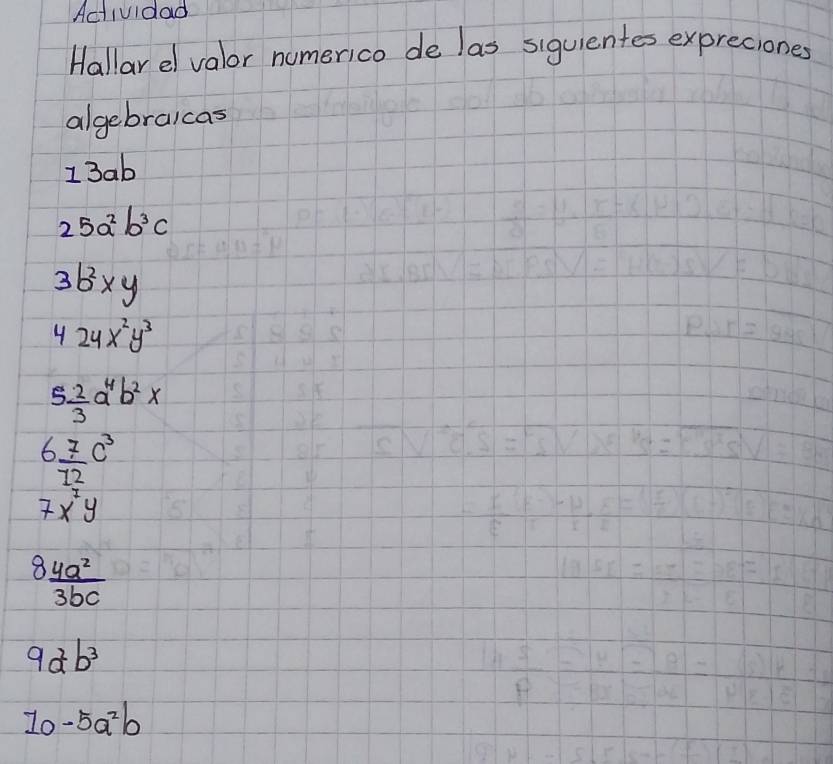 Actividad
Hallar el valor numerico de las siguientes expreciones
algebraicas
1 3ab
2 5a²b³c
3 b²xy
4 24x²y³
5 2/3 a⁴b²x
6 7/12 c³
7 x⁷y
8 4a²/3bc
9 a²b³
10 -5a²b